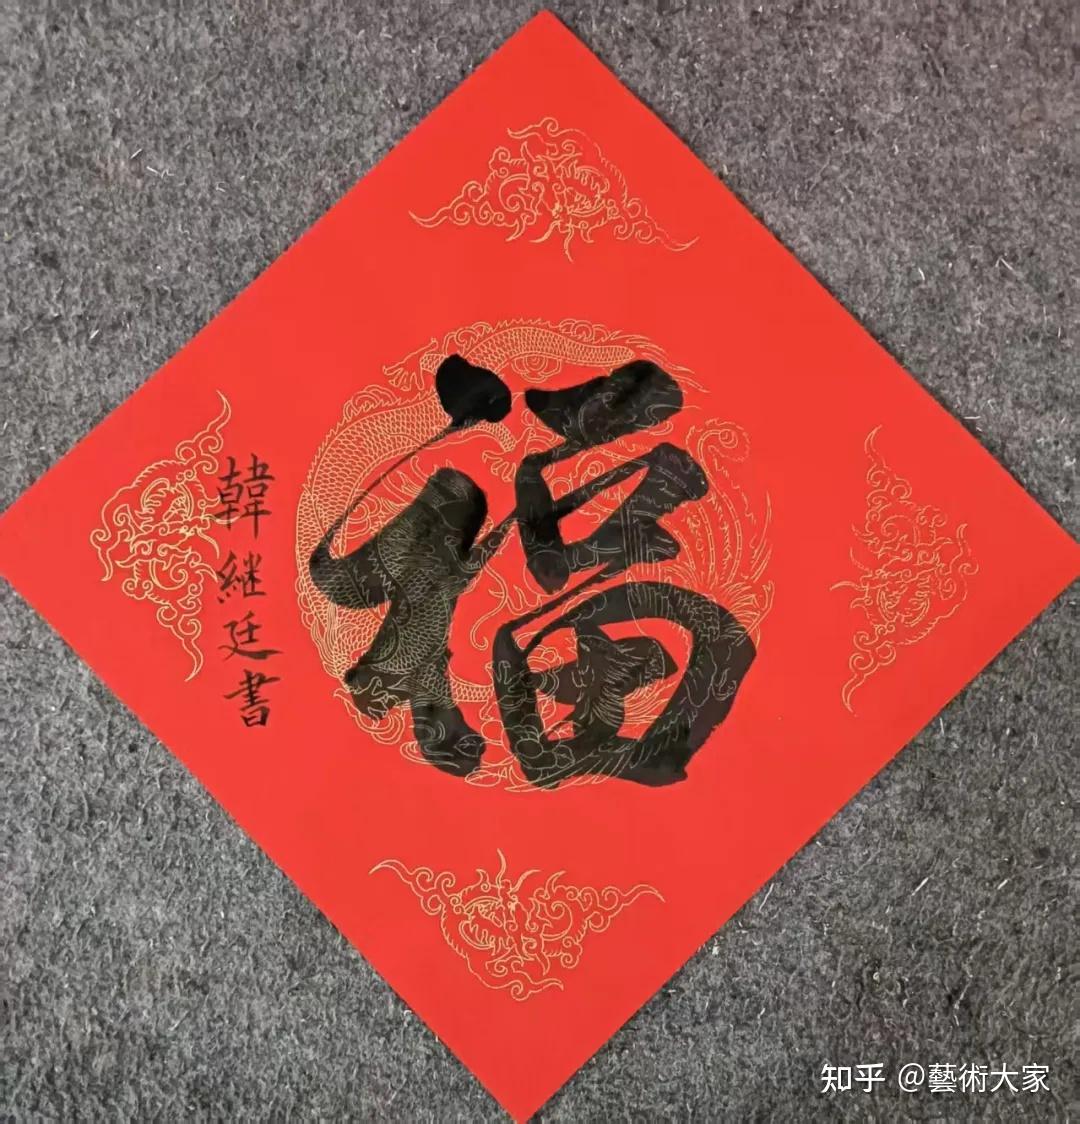 福
韓继廷書
知乎 @藝術大家